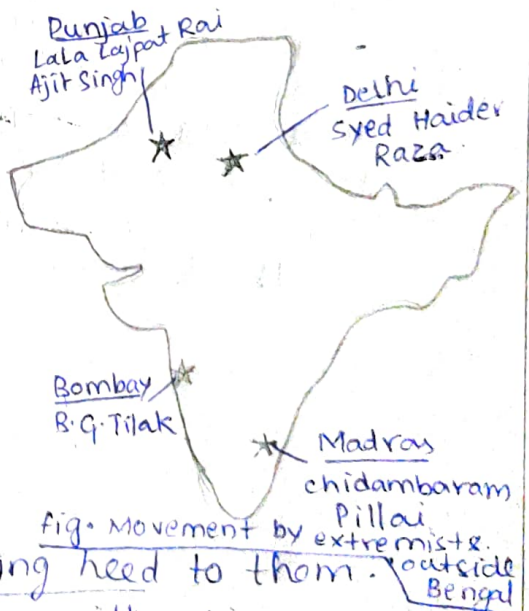 Punjab
Lala Lajpat Rai
Ajit Singh
Delhi
Syed Haider
Raza
Bombay
B.G.Tilak
Madras
Chidambaram
Pillai
fig. Movement by extremists
outside
Bengal
ng heed to them.